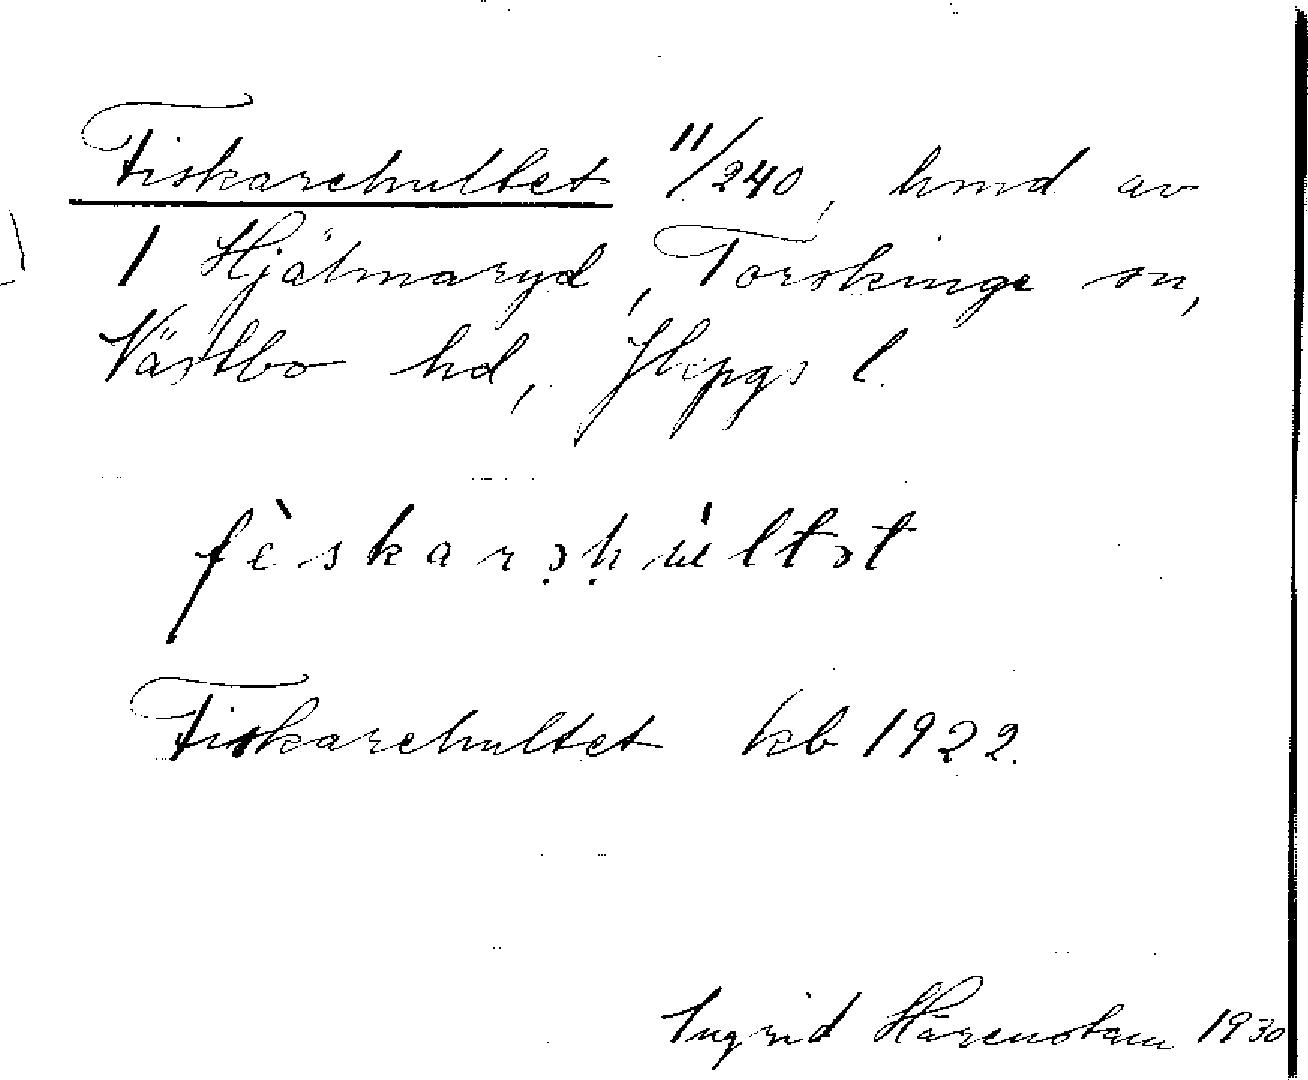 Fiskarehultet 11/240, hmd av
1 Hjälmaryd, Torskinge sn,
Västbo hd, Jkpgs l.
fèskarəhúltət
Fiskarehultet kb 1922.
Ingrid Härenstam 1930